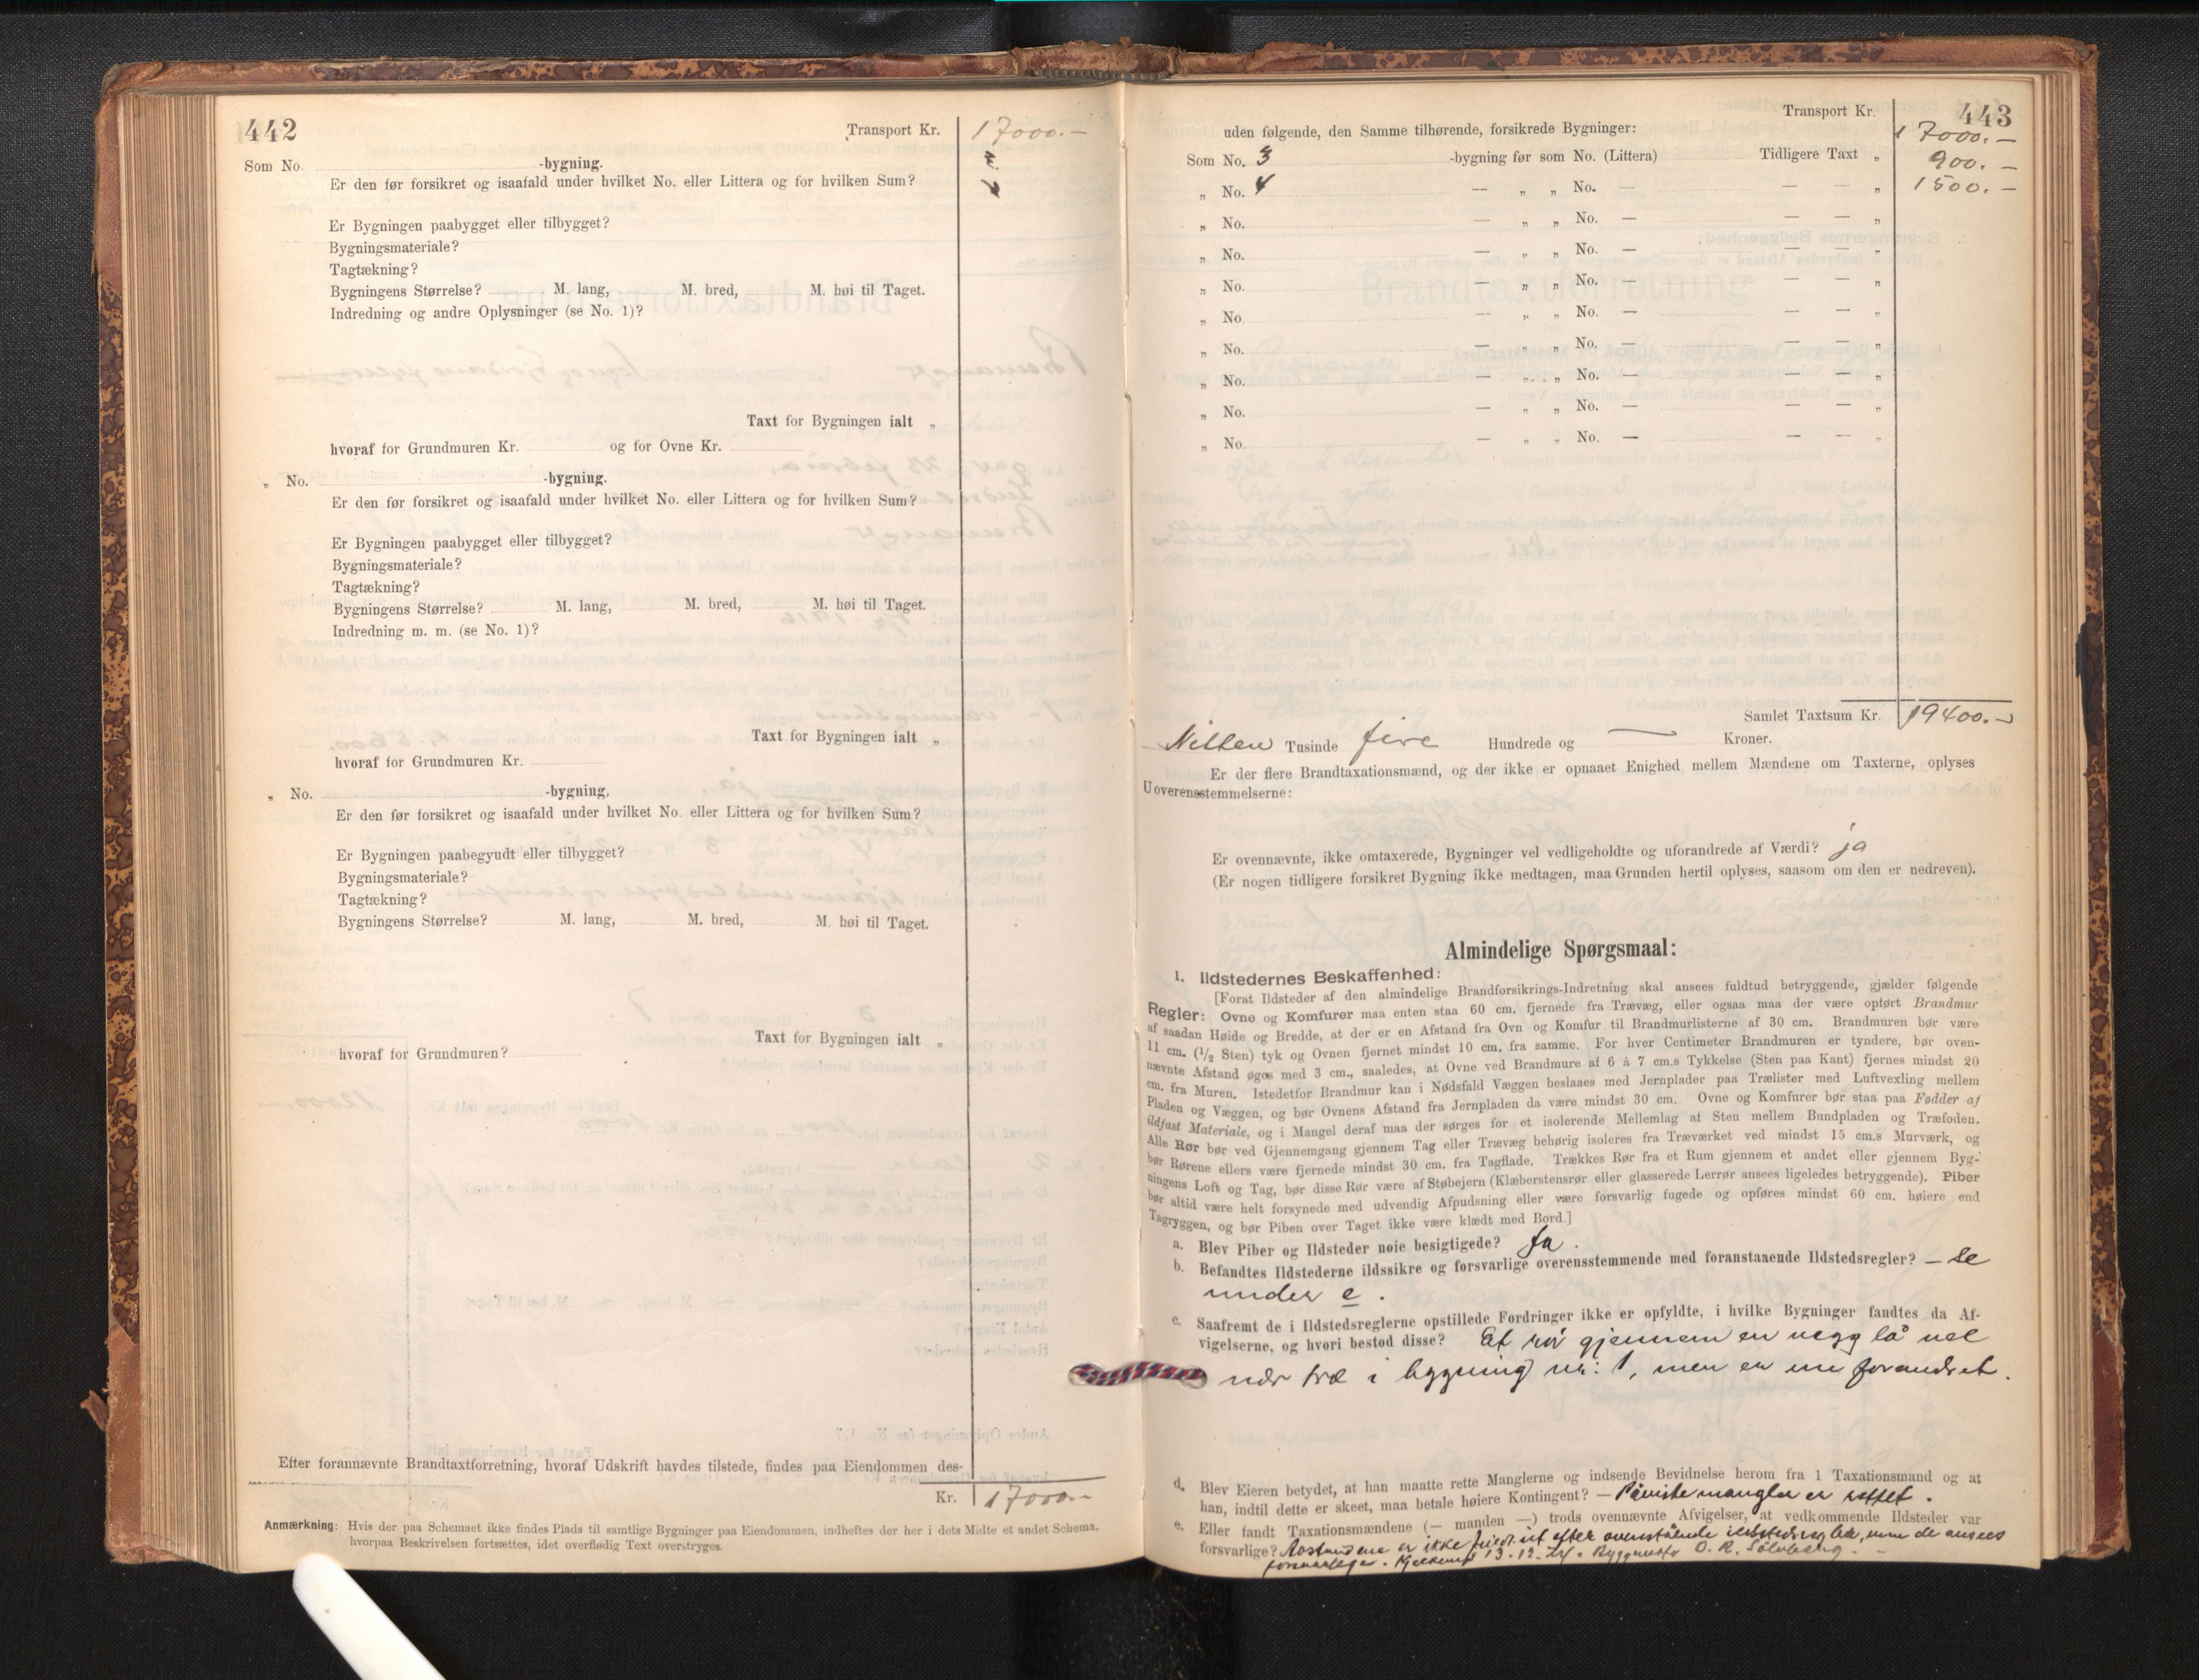 442
Transport Kr. 17000.-
Som No. -bygning.
Er den før forsikret og isaafald under hvilket No. eller Littera og for hvilken Sum?
Er Bygningen paabygget eller tilbygget?
Bygningsmateriale?
Tagtækning?
Bygningens Størrelse? M. lang, M. bred, M. høi til Taget.
Indredning og andre Oplysninger (se No. 1)?
Taxt for Bygningen ialt „
hvoraf for Grundmuren Kr. og for Ovne Kr.
„ No. -bygning.
Er den før forsikret og isaafald under hvilket No. eller Littera og for hvilken Sum?
Er Bygningen paabygget eller tilbygget?
Bygningsmateriale?
Tagtækning?
Bygningens Størrelse? M. lang, M. bred, M. høi til Taget.
Indredning m. m. (se No. 1)?
Taxt for Bygningen ialt „
hvoraf for Grundmuren Kr.
„ No. -bygning,
Er den før forsikret og isaafald under hvilket No. eller Littera og for hvilken Sum?
Er Bygningen paabegyudt eller tilbygget?
Bygningsmateriale?
Tagtækning?
Bygningens Størrelse? M. lang, M. bred, M. høi til Taget.
Taxt for Bygningen ialt „
hvoraf for Grundmuren?
Efter forannævnte Brandtaxtforretning, hvoraf Udskrift havdes tilstede, findes paa Eiendommen des-
Kr. 17000.-
Anmærkning: Hvis der paa Schemaet ikke findes Plads til samtlige Bygninger paa Eiendommen, indheftes der her i dets Midte et andet Schema,
hvorpaa Beskrivelsen fortsættes, idet overflødig Text overstryges.
443
Transport Kr. 17000.-
uden følgende, den Samme tilhørende, forsikrede Bygninger:
Som No. 3 -bygning før som No. (Littera) Tidligere Taxt „ 900.-
„ No. 4 — „ „ No. — — — „ 1500.-
„ No. — „ „ No. — — — „
„ No. — „ „ No. — — — „
„ No. — „ „ No. — — — „
„ No. — „ „ No. — — — „
„ No. — „ „ No. — — — „
„ No. — „ „ No. — — — „
„ No. — „ „ No. — — — „
„ No. — „ „ No. — — — „
Samlet Taxtsum Kr. 19400.-
— Nitten Tusinde fire Hundrede og — Kroner.
Er der flere Brandtaxationsmænd, og der ikke er opnaaet Enighed mellem Mændene om Taxterne, oplyses
Uoverensstemmelserne:
Er ovennævnte, ikke omtaxerede, Bygninger vel vedligeholdte og uforandrede af Værdi? ja
(Er nogen tidligere forsikret Bygning ikke medtagen, maa Grunden hertil oplyses, saasom om den er nedreven).
Almindelige Spørgsmaal:
1. Ildstedernes Beskaffenhed:
[Forat Ildsteder af den almindelige Brandforsikrings-Indretning skal ansees fuldtud betryggende, gjælder følgende
Regler: Ovne og Komfurer maa enten staa 60 cm. fjernede fra Trævæg, eller ogsaa maa der være opført Brandmur
af saadan Høide og Bredde, at der er en Afstand fra Ovn og Komfur til Brandmurlisterne af 30 cm. Brandmuren bør være
11 cm. (1/2 Sten) tyk og Ovnen fjernet mindst 10 cm. fra samme. For hver Centimeter Brandmuren er tyndere, bør oven-
nævnte Afstand øges med 3 cm., saaledes, at Ovne ved Brandmure af 6 à 7 cm.s Tykkelse (Sten paa Kant) fjernes mindst 20
cm. fra Muren. Istedetfor Brandmur kan i Nødsfald Væggen beslaaes med Jernplader paa Trælister med Luftvexling mellem
Pladen og Væggen, og bør Ovnens Afstand fra Jernpladen da være mindst 30 cm. Ovne og Komfurer bør staa paa Fødder af
ildfast Materiale, og i Mangel deraf maa der sørges for et isolerende Mellemlag af Sten mellem Bundpladen og Træfoden.
Alle Rør bør ved Gjennemgang gjennem Tag eller Trævæg behørig isoleres fra Træværket ved mindst 15 cm.s Murværk, og
bør Rørene ellers være fjernede mindst 30 cm. fra Tagflade. Trækkes Rør fra et Rum gjennem et andet eller gjennem Byg-
ningens Loft og Tag, bør disse Rør være af Støbejern (Klæberstensrør eller glasserede Lerrør ansees ligeledes betryggende). Piber
bør altid være helt forsynede med udvendig Afpudsning eller være forsvarlig fugede og opføres mindst 60 cm. høiere end
Tagryggen, og bør Piben over Taget ikke være klædt med Bord.]
a. Blev Piber og Ildsteder nøie besigtigede? Ja.
b. Befandtes Ildstederne ildssikre og forsvarlige overensstemmende med foranstaaende Ildstedsregler? — se
under e.
c. Saafremt de i Ildstedsreglerne opstillede Fordringer ikke er opfyldte, i hvilke Bygninger fandtes da Af-
vigelserne, og hvori bestod disse? Et rör gjennem en vegg lå vel
nær træ i bygning nr: 1, men er nu forandret.
d. Blev Eieren betydet, at han maatte rette Manglerne og indsende Bevidnelse herom fra 1 Taxationsmand og at
han, indtil dette er skeet, maa betale høiere Kontingent? — Påviste mangler er rettet.
e. Eller fandt Taxationsmændene (— manden —) trods ovennævnte Afvigelser, at vedkommende Ildsteder var
forsvarlige? Avstandene er ikke efter ovenstående ildstedsregler, men de ansees
forsvarlige. 13.12.24. Byggmester O. R. Sølvberg.